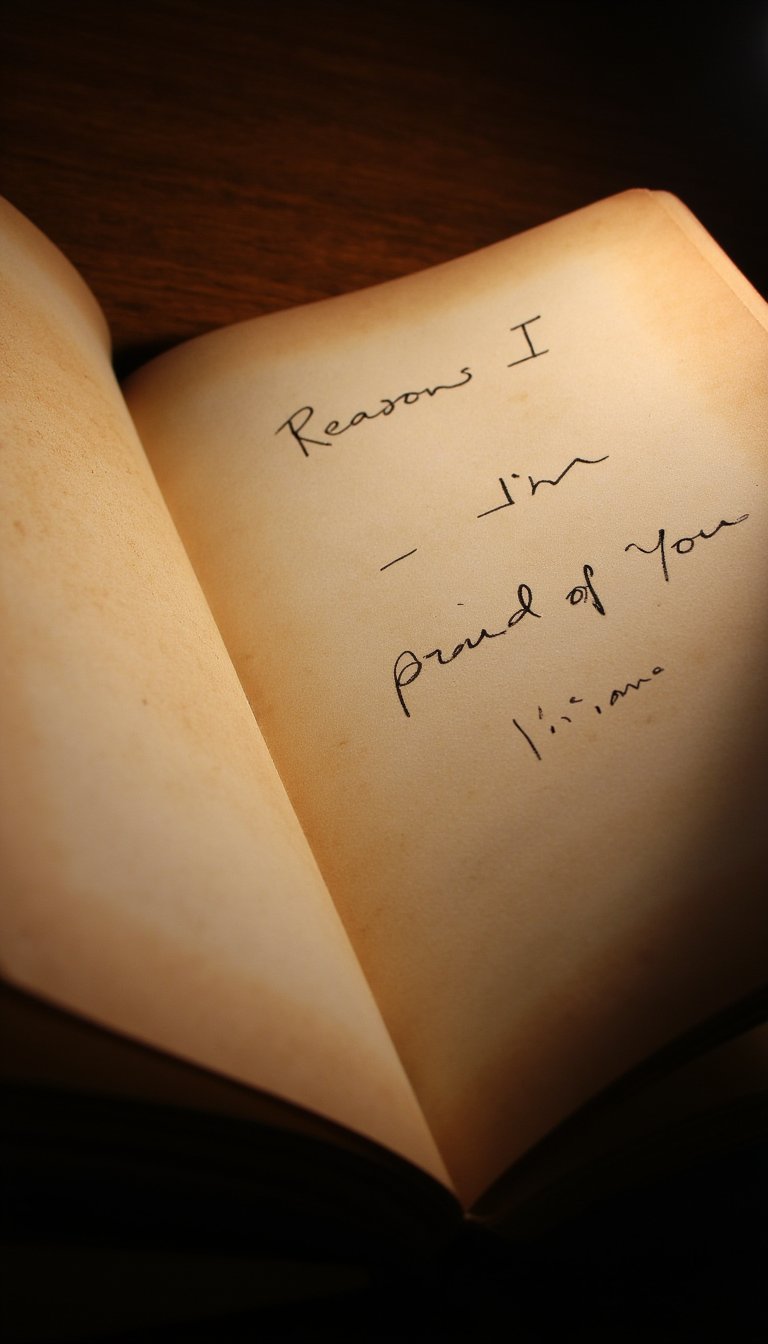 Reasons I
— I'm
proud of You